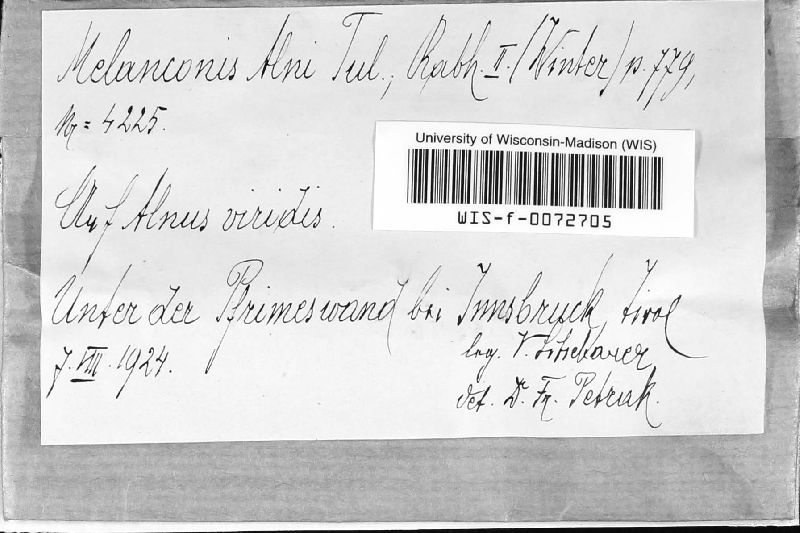 Melanconis Alni Tul., Rabh. II. (Winter) p. 779,
Nr = 4225.
University of Wisconsin-Madison (WIS)
WIS-f-0072705
Auf Alnus viridis.
Unter der Pfrimeswand bei Innsbruck, Tirol
7. VIII. 1924.
leg. V. Litschauer
det. D. Fr. Petrak.